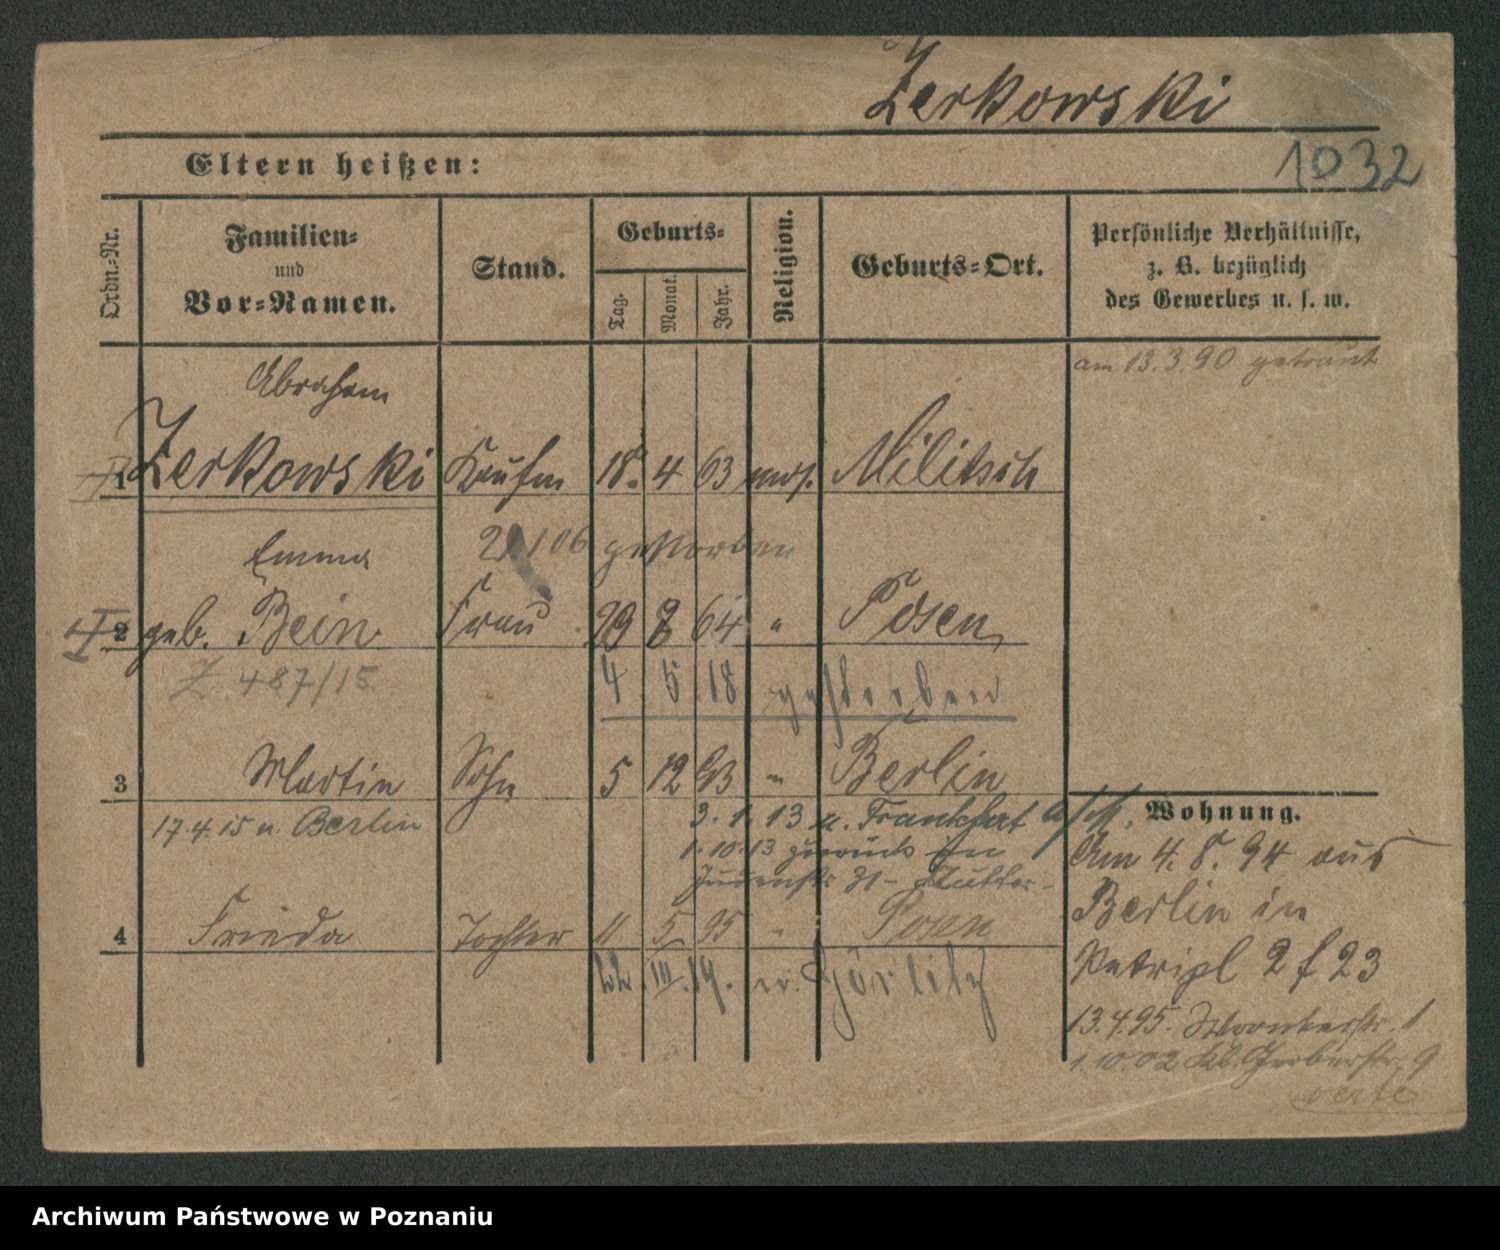 Zerkowski
1032
Eltern heißen:
Ordn.-Nr.
Familien-
und
Vor-Namen.
Stand.
Geburts-
Tag.
Monat.
Jahr.
Religion.
Geburts-Ort.
Persönliche Verhältnisse,
z. B. bezüglich
des Gewerbes u. s. w.
am 13.3.90 getraut
Abraham
1 Zerkowski Kaufm 18. 4 63 mos. Militsch
2/1 06 gestorben
Emma
2 geb. Bein Frau 29 8 64 " Posen
Z. 487/15
4. 5. 18 gestorben
3 Martin Sohn 5 12 93 " Berlin
17.4.15 n. Berlin
3. 1. 13 n. Frankfurt
1.10.13 zurück in
Judenstr 31 - Mutter -
4 Frieda Tochter 11 5 95 " Posen
22. III. 19. n. Görlitz
Wohnung.
Am 4. 8. 94 aus
Berlin in
Petripl 2 f 23
13.4.95. Wronkerstr. 1
1.10.02 Kl. Gerberstr. 9
verte
Archiwum Państwowe w Poznaniu